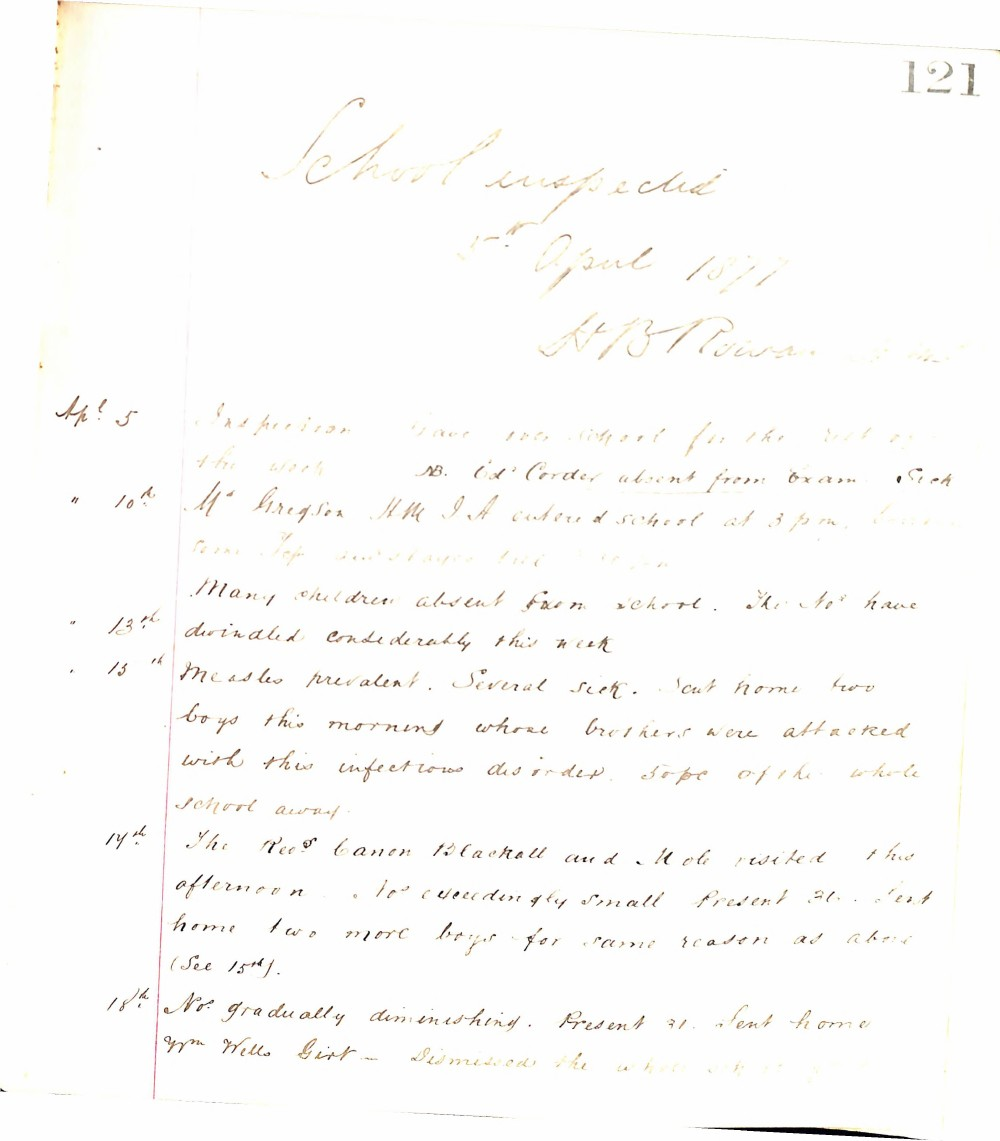 121
School inspected
5th April 1877
H B Rowan
Apl 5 Inspection Gave over school for the rest of
the week NB. Edd Corder absent from Exam. Sick
" 10th Mr Gregson HM I A entered school at 3 pm.
some and stayed till
Many children absent from school. The Nos have
" 13th dwindled considerably this week
" 15th Measles prevalent. Several sick. Sent home two
boys this morning whose brothers were attacked
with this infectious disorder. 50pc of the whole
school away.
17th The Revds Canon Blackall and visited this
afternoon. Nos exceedingly small Present Sent
home two more boys for same reason as above
(See 15th).
18th Nos gradually diminishing. Present 21. Sent home
Wm Wells Girt – Dismissed the whole